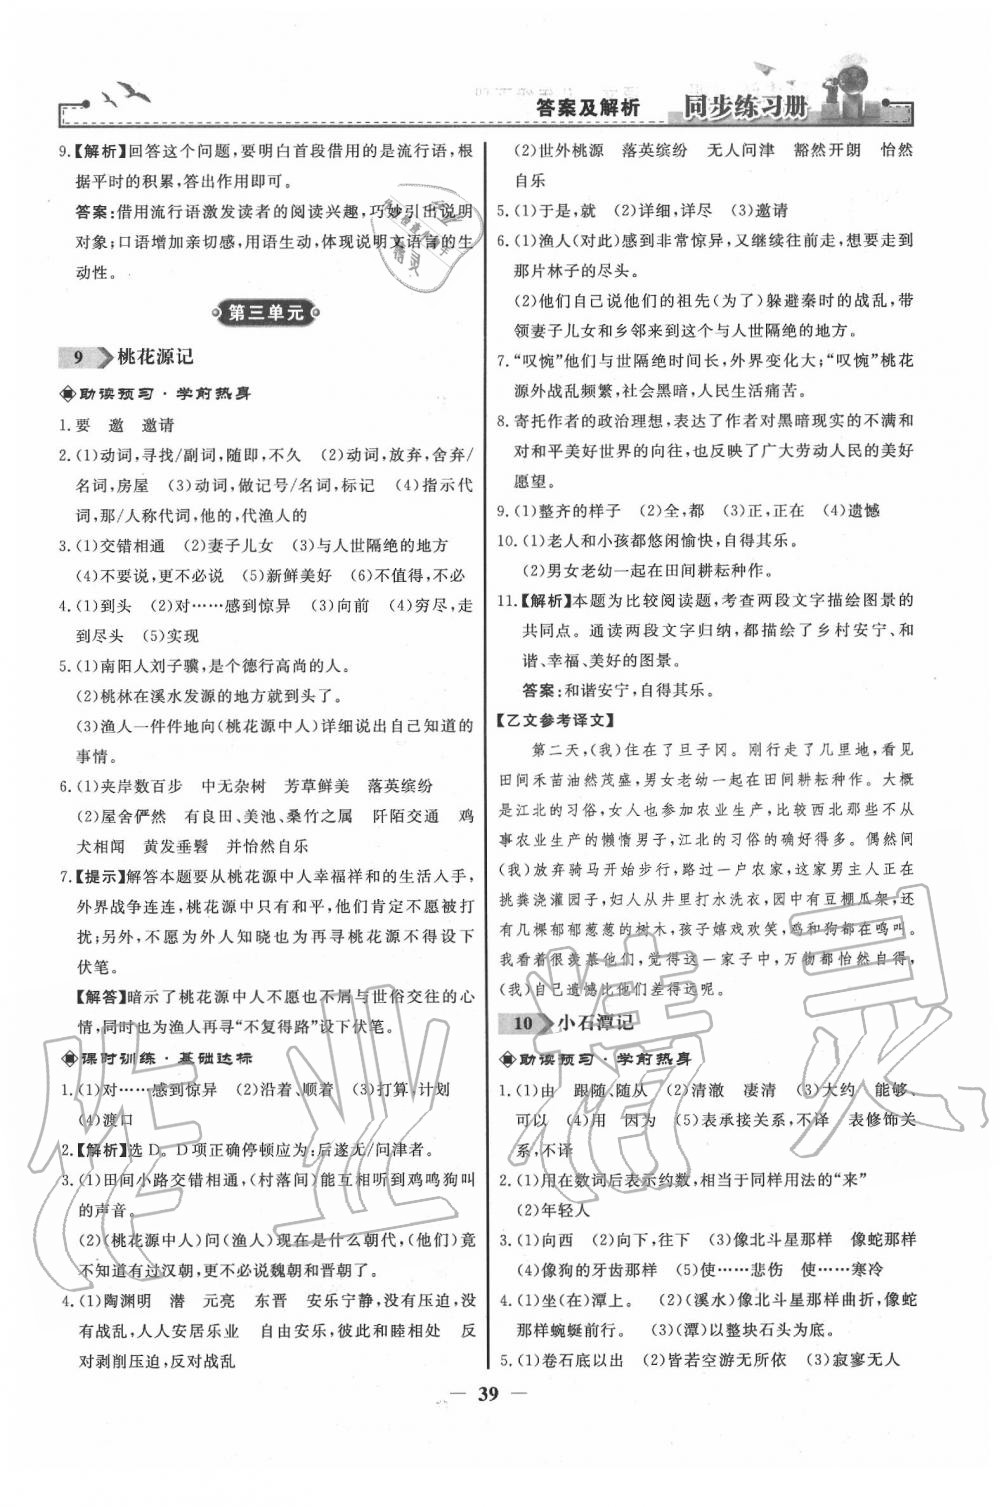 答案及解析 同步练习册
9.【解析】回答这个问题,要明白首段借用的是流行语,根
据平时的积累,答出作用即可。
答案:借用流行语激发读者的阅读兴趣,巧妙引出说明
对象;口语增加亲切感,用语生动,体现说明文语言的生
动性。
第三单元
9 桃花源记
助读预习·学前热身
1.要 邀 邀请
2.(1)动词,寻找/副词,随即,不久 (2)动词,放弃,舍弃/
名词,房屋 (3)动词,做记号/名词,标记 (4)指示代
词,那/人称代词,他的,代渔人的
3.(1)交错相通 (2)妻子儿女 (3)与人世隔绝的地方
(4)不要说,更不必说 (5)新鲜美好 (6)不值得,不必
4.(1)到头 (2)对……感到惊异 (3)向前 (4)穷尽,走
到尽头 (5)实现
5.(1)南阳人刘子骥,是个德行高尚的人。
(2)桃林在溪水发源的地方就到头了。
(3)渔人一件件地向(桃花源中人)详细说出自己知道的
事情。
6.(1)夹岸数百步 中无杂树 芳草鲜美 落英缤纷
(2)屋舍俨然 有良田、美池、桑竹之属 阡陌交通 鸡
犬相闻 黄发垂髫 并怡然自乐
7.【提示】解答本题要从桃花源中人幸福祥和的生活入手,
外界战争连连,桃花源中只有和平,他们肯定不愿被打
扰;另外,不愿为外人知晓也为再寻桃花源不得设下
伏笔。
【解答】暗示了桃花源中人不愿也不屑与世俗交往的心
情,同时也为渔人再寻“不复得路”设下伏笔。
课时训练·基础达标
1.(1)对……感到惊异 (2)沿着、顺着 (3)打算,计划
(4)渡口
2.【解析】选 D。D项正确停顿应为:后遂无/问津者。
3.(1)田间小路交错相通,(村落间)能互相听到鸡鸣狗叫
的声音。
(2)(桃花源中人)问(渔人)现在是什么朝代,(他们)竟
不知道有过汉朝,更不必说魏朝和晋朝了。
4.(1)陶渊明 潜 元亮 东晋 安乐宁静,没有压迫,没
有战乱,人人安居乐业 自由安乐,彼此和睦相处 反
对剥削压迫,反对战乱
(2)世外桃源 落英缤纷 无人问津 豁然开朗 怡然
自乐
5.(1)于是,就 (2)详细,详尽 (3)邀请
6.(1)渔人(对此)感到非常惊异,又继续往前走,想要走到
那片林子的尽头。
(2)他们自己说他们的祖先(为了)躲避秦时的战乱,带
领妻子儿女和乡邻来到这个与人世隔绝的地方。
7.“叹惋”他们与世隔绝时间长,外界变化大;“叹惋”桃花
源外战乱频繁,社会黑暗,人民生活痛苦。
8.寄托作者的政治理想,表达了作者对黑暗现实的不满和
对和平美好世界的向往,也反映了广大劳动人民的美好
愿望。
9.(1)整齐的样子 (2)全,都 (3)正,正在 (4)遗憾
10.(1)老人和小孩都悠闲愉快,自得其乐。
(2)男女老幼一起在田间耕耘种作。
11.【解析】本题为比较阅读题,考查两段文字描绘图景的
共同点。通读两段文字归纳,都描绘了乡村安宁、和
谐、幸福、美好的图景。
答案:和谐安宁,自得其乐。
【乙文参考译文】
第二天,(我)住在了旦子冈。刚行走了几里地,看见
田间禾苗油然茂盛,男女老幼一起在田间耕耘种作。大概
是江北的习俗,女人也参加农业生产,比较西北那些不从
事农业生产的懒惰男子,江北的习俗的确好得多。偶然间
(我)放弃骑马开始步行,路过一户农家,这家男主人正在
挑粪浇灌园子,妇人从井里打水洗衣,园中有豆棚瓜架,还
有几棵郁郁葱葱的树木,孩子嬉戏欢笑,鸡和狗都在鸣叫。
我看着很羡慕他们,觉得这一家子中,万物都怡然自得,
(我)自己遗憾比他们差得远呢。
10 小石潭记
助读预习·学前热身
1.(1)由 跟随、随从 (2)清澈 凄清 (3)大约 能够、
可以 (4)用 因为 (5)表承接关系,不译 表修饰关
系,不译
2.(1)用在数词后表示约数,相当于同样用法的“来”
(2)年轻人
3.(1)向西 (2)向下,往下 (3)像北斗星那样 像蛇那样
(4)像狗的牙齿那样 (5)使……悲伤 使……寒冷
4.(1)坐(在)潭上。 (2)(溪水)像北斗星那样曲折,像蛇
那样蜿蜒前行。 (3)(潭)以整块石头为底。
5.(1)卷石底以出 (2)皆若空游无所依 (3)寂寥无人
39
作业精灵